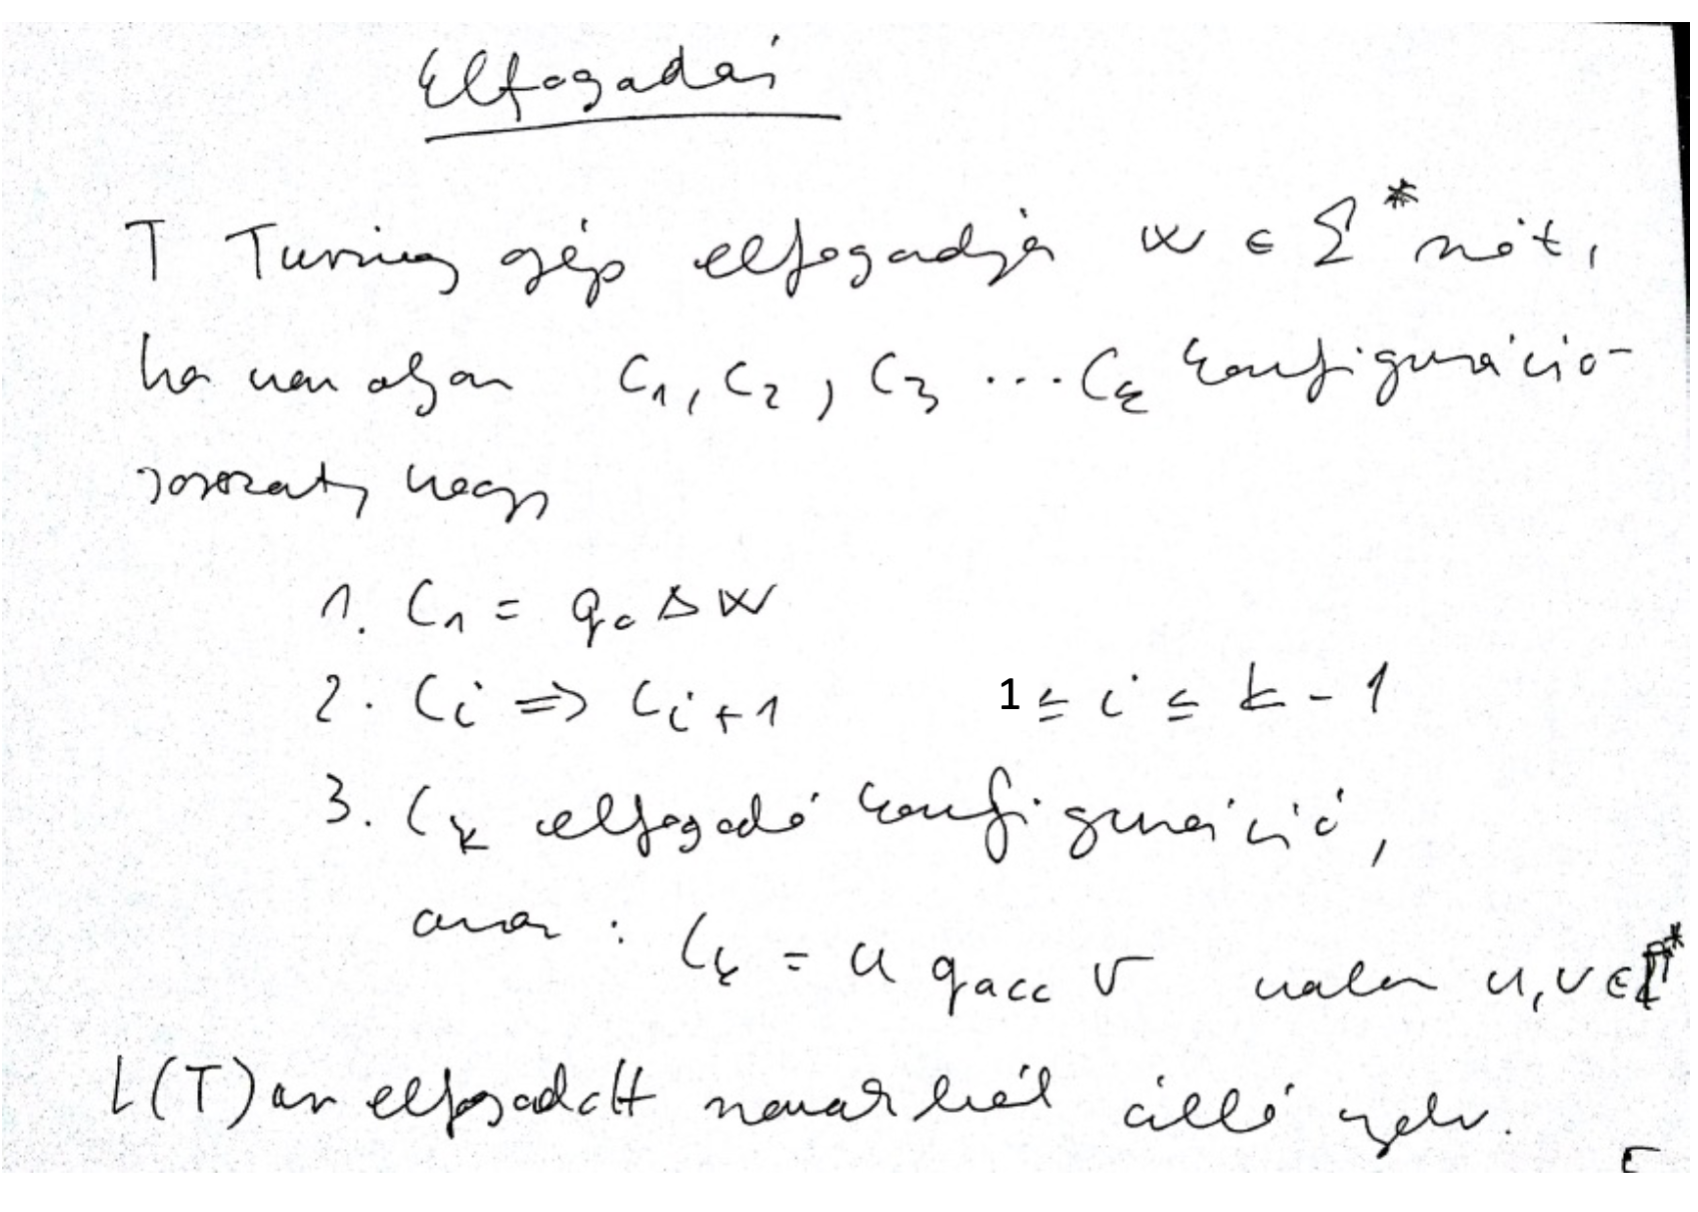 Elfogadás
T Turing gép elfogadja w ∈ Σ* szót,
ha van olyan C₁, C₂, C₃ ... Cₖ konfiguráció-
sorozat, hogy
1. C₁ = q₀ Δ w
2. Cᵢ ⇒ Cᵢ₊₁ 1 ≤ i ≤ k - 1
3. Cₖ elfogadó konfiguráció,
azaz : Cₖ = u q_acc v valan u, v ∈ Γ*
L(T) az elfogadott szavakból álló nyelv.